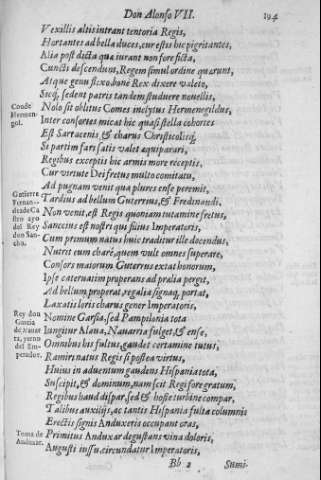 Don Alonso VII.
194
Vexillis altis intrant tentoria Regis,
Hortantes ad bella duces, cur estis hic pigritantes,
Alia post dicta quæ iurant non fore ficta,
Cunctis descendunt, Regem simul ordine quærunt,
Atque genu flexo bone Rex dixere valeto,
Sicq, sedent patris tandem studuere nouellis,
Conde Hermen-gol.
Nolo sit oblitus Comes inclytus Hermenegildus,
Inter consortes micat hic quasi stella cohortes
Est Sarracenis, & charus Christicolisq,
Si partim fars fatis valet æquiparari,
Regibus exceptis hic armis more receptis,
Cur virtute Dei fretus multo comitatu,
Ad pugnam venit qua plures ense peremit,
Gutierre Fernan-dez de Castro ayo del Rey don San-cho.
Tardius ad bellum Guterrius, & Ferdinandi,
Non venit, est Regis quoniam tutamine fretus,
Sanccius est nostri quę filius Imperatoris,
Cum primum natus huic traditur ille docendus,
Nutrit eum charè, quem vult omnes superare,
Consors maiorum Guterrus extat honorum,
Ipse cateruatim properans ad prælia pergit,
Ad bellum properat, regalia signaq, portat,
Laxatis loris charus gener Imperatoris,
Rey don Garcia de Nauarra, yerno del Emperador.
Nomine Garsia, sed Pampilonia tota
Iungitur Alaua, Nauarria fulget, & ense,
Omnibus his fultus, gaudet certamine tutus,
Ramiri natus Regis si postea virtus,
Huius in aduentum gaudens Hispania tota,
Suscipit, & dominum, nam scit Regi fore gratum,
Regibus haud dispar, sed & hoste turbine compar,
Talibus auxilijs, ac tantis Hispania fulta columnis
Erectis signis Anduxeris occupant oras,
Toma de Anduxar.
Primitus Anduxar degustans vina doloris,
Augusti iussu. circundatur Imperatoris,
Bb 2
Sumi-